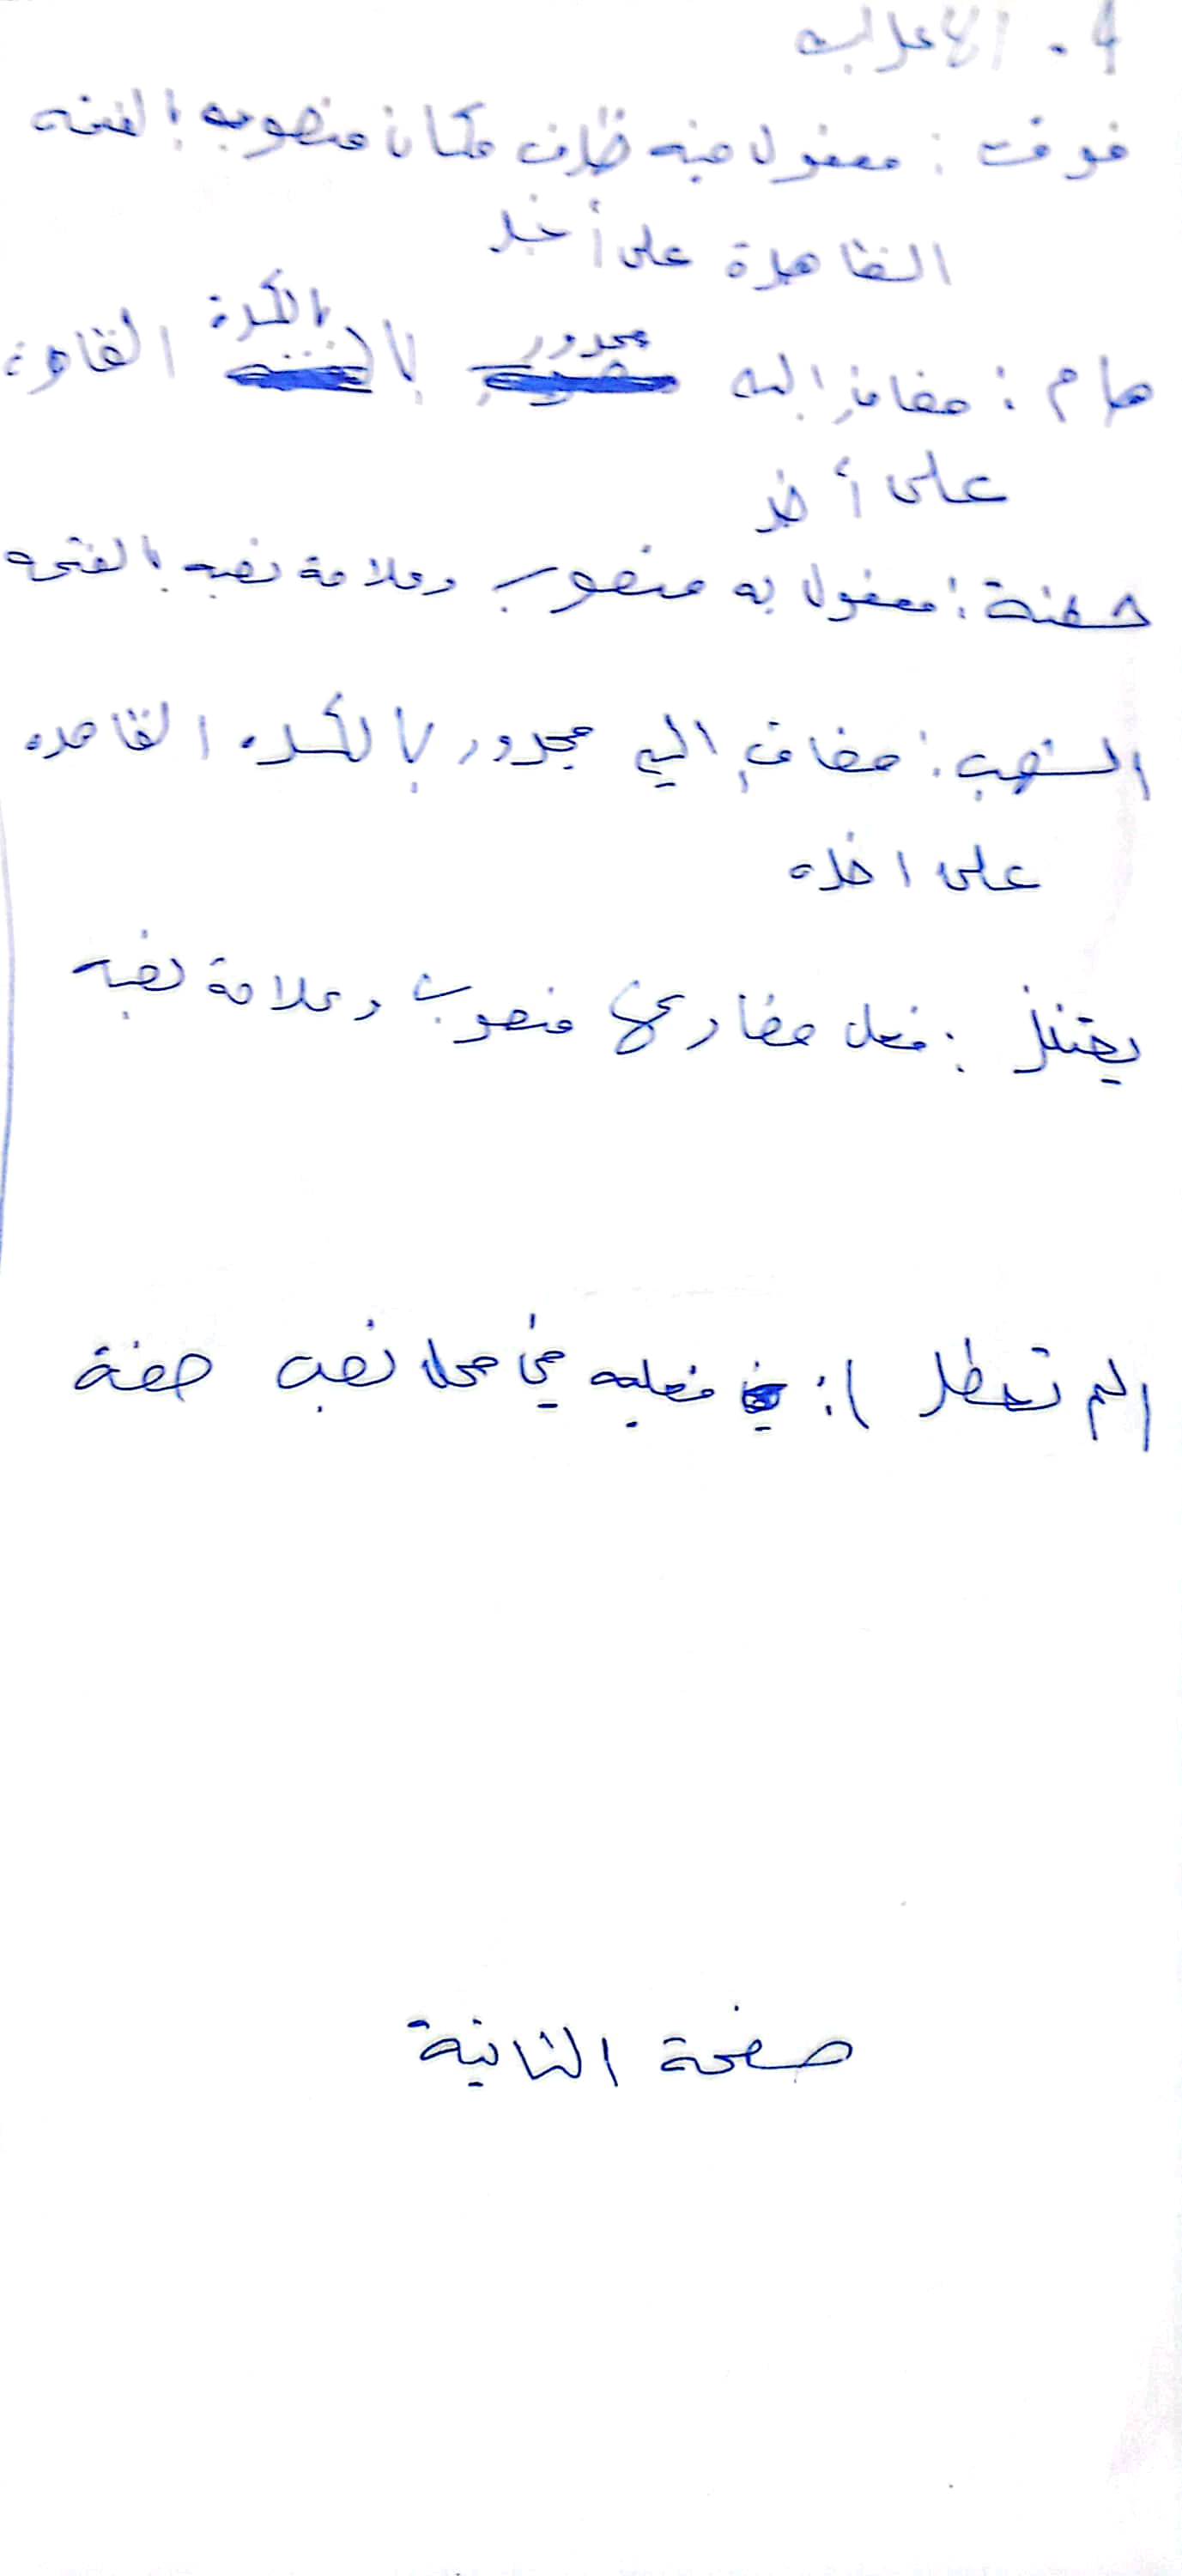 4. الاعراب
فوق : مفعول فيه ظرف مكان منصوب بالفتحه
الظاهرة على أخر
هام : مضاف اليه مجرور بالكسرة الظاهرة
على أخر
حفنة : مفعول به منصوب وعلامة نصبه بالفتحه
الشهب : مضاف الي مجرور بالكسره الظاهره
على اخره
يختنز : فعل مضارع منصوب وعلامة نصبه
(لم تمطر) : فعليه في محل نصب صفة
صفحة الثانية